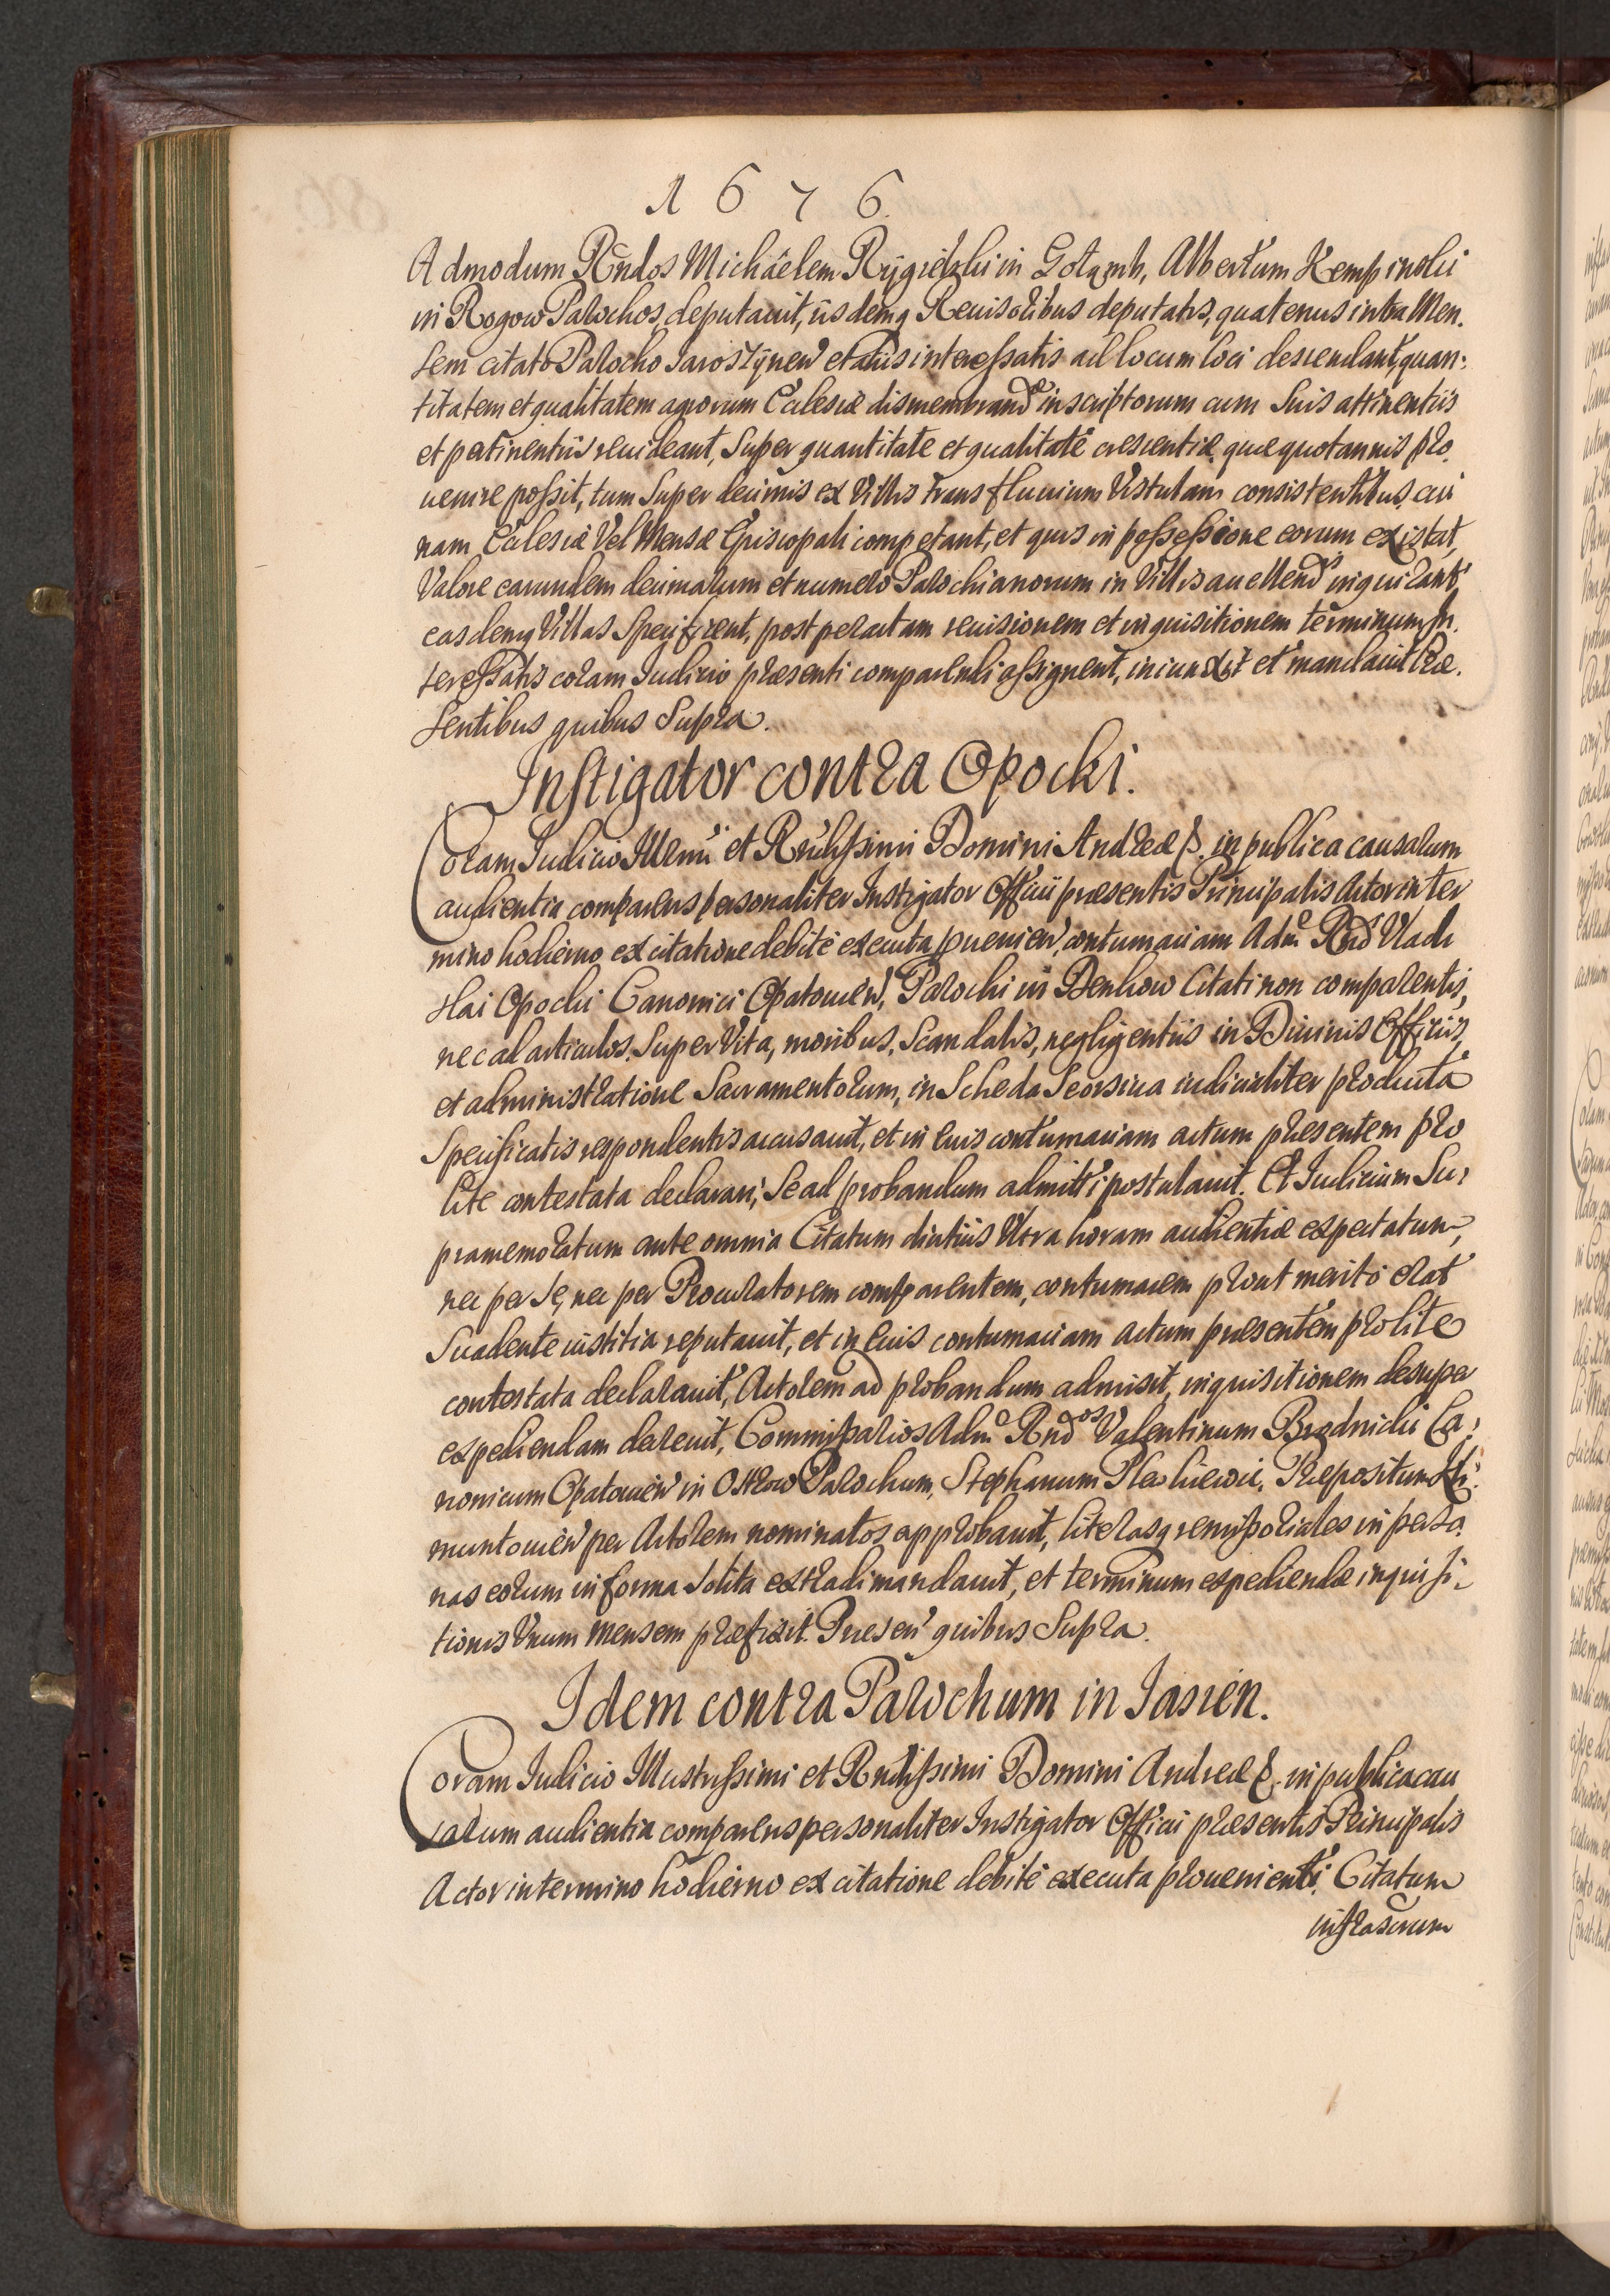 1676
Admodum Rndos Michäelem Rÿgielzki in Gotamb, Albertum Kempinski
in Rogow Parochos, deputauit, iisdemq Reuisoribus deputatis, quatenus intra Men.
sem citato Parocho Jarostÿnen et aliis interessatis ad locum loci descendant, quan:
titatem et qualitatem agrorum Eclesiæ dismembrand inscriptorum cum suis attinentiis
et pertinentiis reuideant, Super quantitate et qualitate crescentiæ, quæ quotannis pro
uenire possit, tum Super decimis ex Villis trans fluuium Vistulam consistentibus, cui
nam Eclesiæ Vel Mensæ Episcopali competant, et quis in possessione eorum existat,
Valore earundem decimarum et numero Parochianorum in Villis auellend inquirant
easdemq Villas Specificent, post peractam reuisionem et inquisitionem terminum In.
teressatis coram Iudicio præsenti comparendi assignent, iniunxit et mandauit Præ.
sentibus quibus Supra.
Instigator contra Opocki.
Coram Iudicio Illmi et Rndissimi Domini Andreæ &. in publica causarum
audientia comparens personaliter Instigator Officii præsentis Principalis Actor in ter
mino hodierno ex citatione debite executa prouenien, contumaciam Adm Rnd Vladi
slai Opocki Canonici Opatouien, Parochi in Denkow Citati non comparentis,
nec ad articulos, Super Vita, moribus, Scandalis, negligentiis in Diuinis Officiis,
et administratione Sacramentorum, in Scheda Seorsiua iudicialiter producta
Specificatis respondentis accusauit, et in euis contumaciam actum præsentem pro
lite contestata declarari, Se ad probandum admitti postulauit. Et Iudicium Su:
pramemoratum ante omnia Citatum diutiùs Vltra horam audientiæ expectatum,
nec per se, nec per Procuratorem comparentem, contumacem prout merito erat
Suadente iustitia reputauit, et in euis contumaciam actum præsentem pro lite
contestata declarauit, Actorem ad probandum admisit, inquisitionem desuper
expediendam decreuit, Commissarios Adm Rndos Valentinum Brodnicki Ca:
nonicum Opatouien in Ostrow Parochum, Stephanum Præpositum Kli:
muntouien per Actorem nominatos approbauit, literasq remissoriales in perso.
nas eorum in forma Solita extradi mandauit, et terminum expediendæ inquisi:
tionis Vnum mensem præfixit. Presen quibus Supra.
Idem contra Parochum in Jasien.
Coram Iudicio Illustrissimi et Rndissimi Domini Andreæ &. in publica cau
sarum audientia comparens personaliter Instigator Officii præsentis Principalis
Actor in termino hodierno ex citatione debite executa prouenienti Citatum
infrascrum